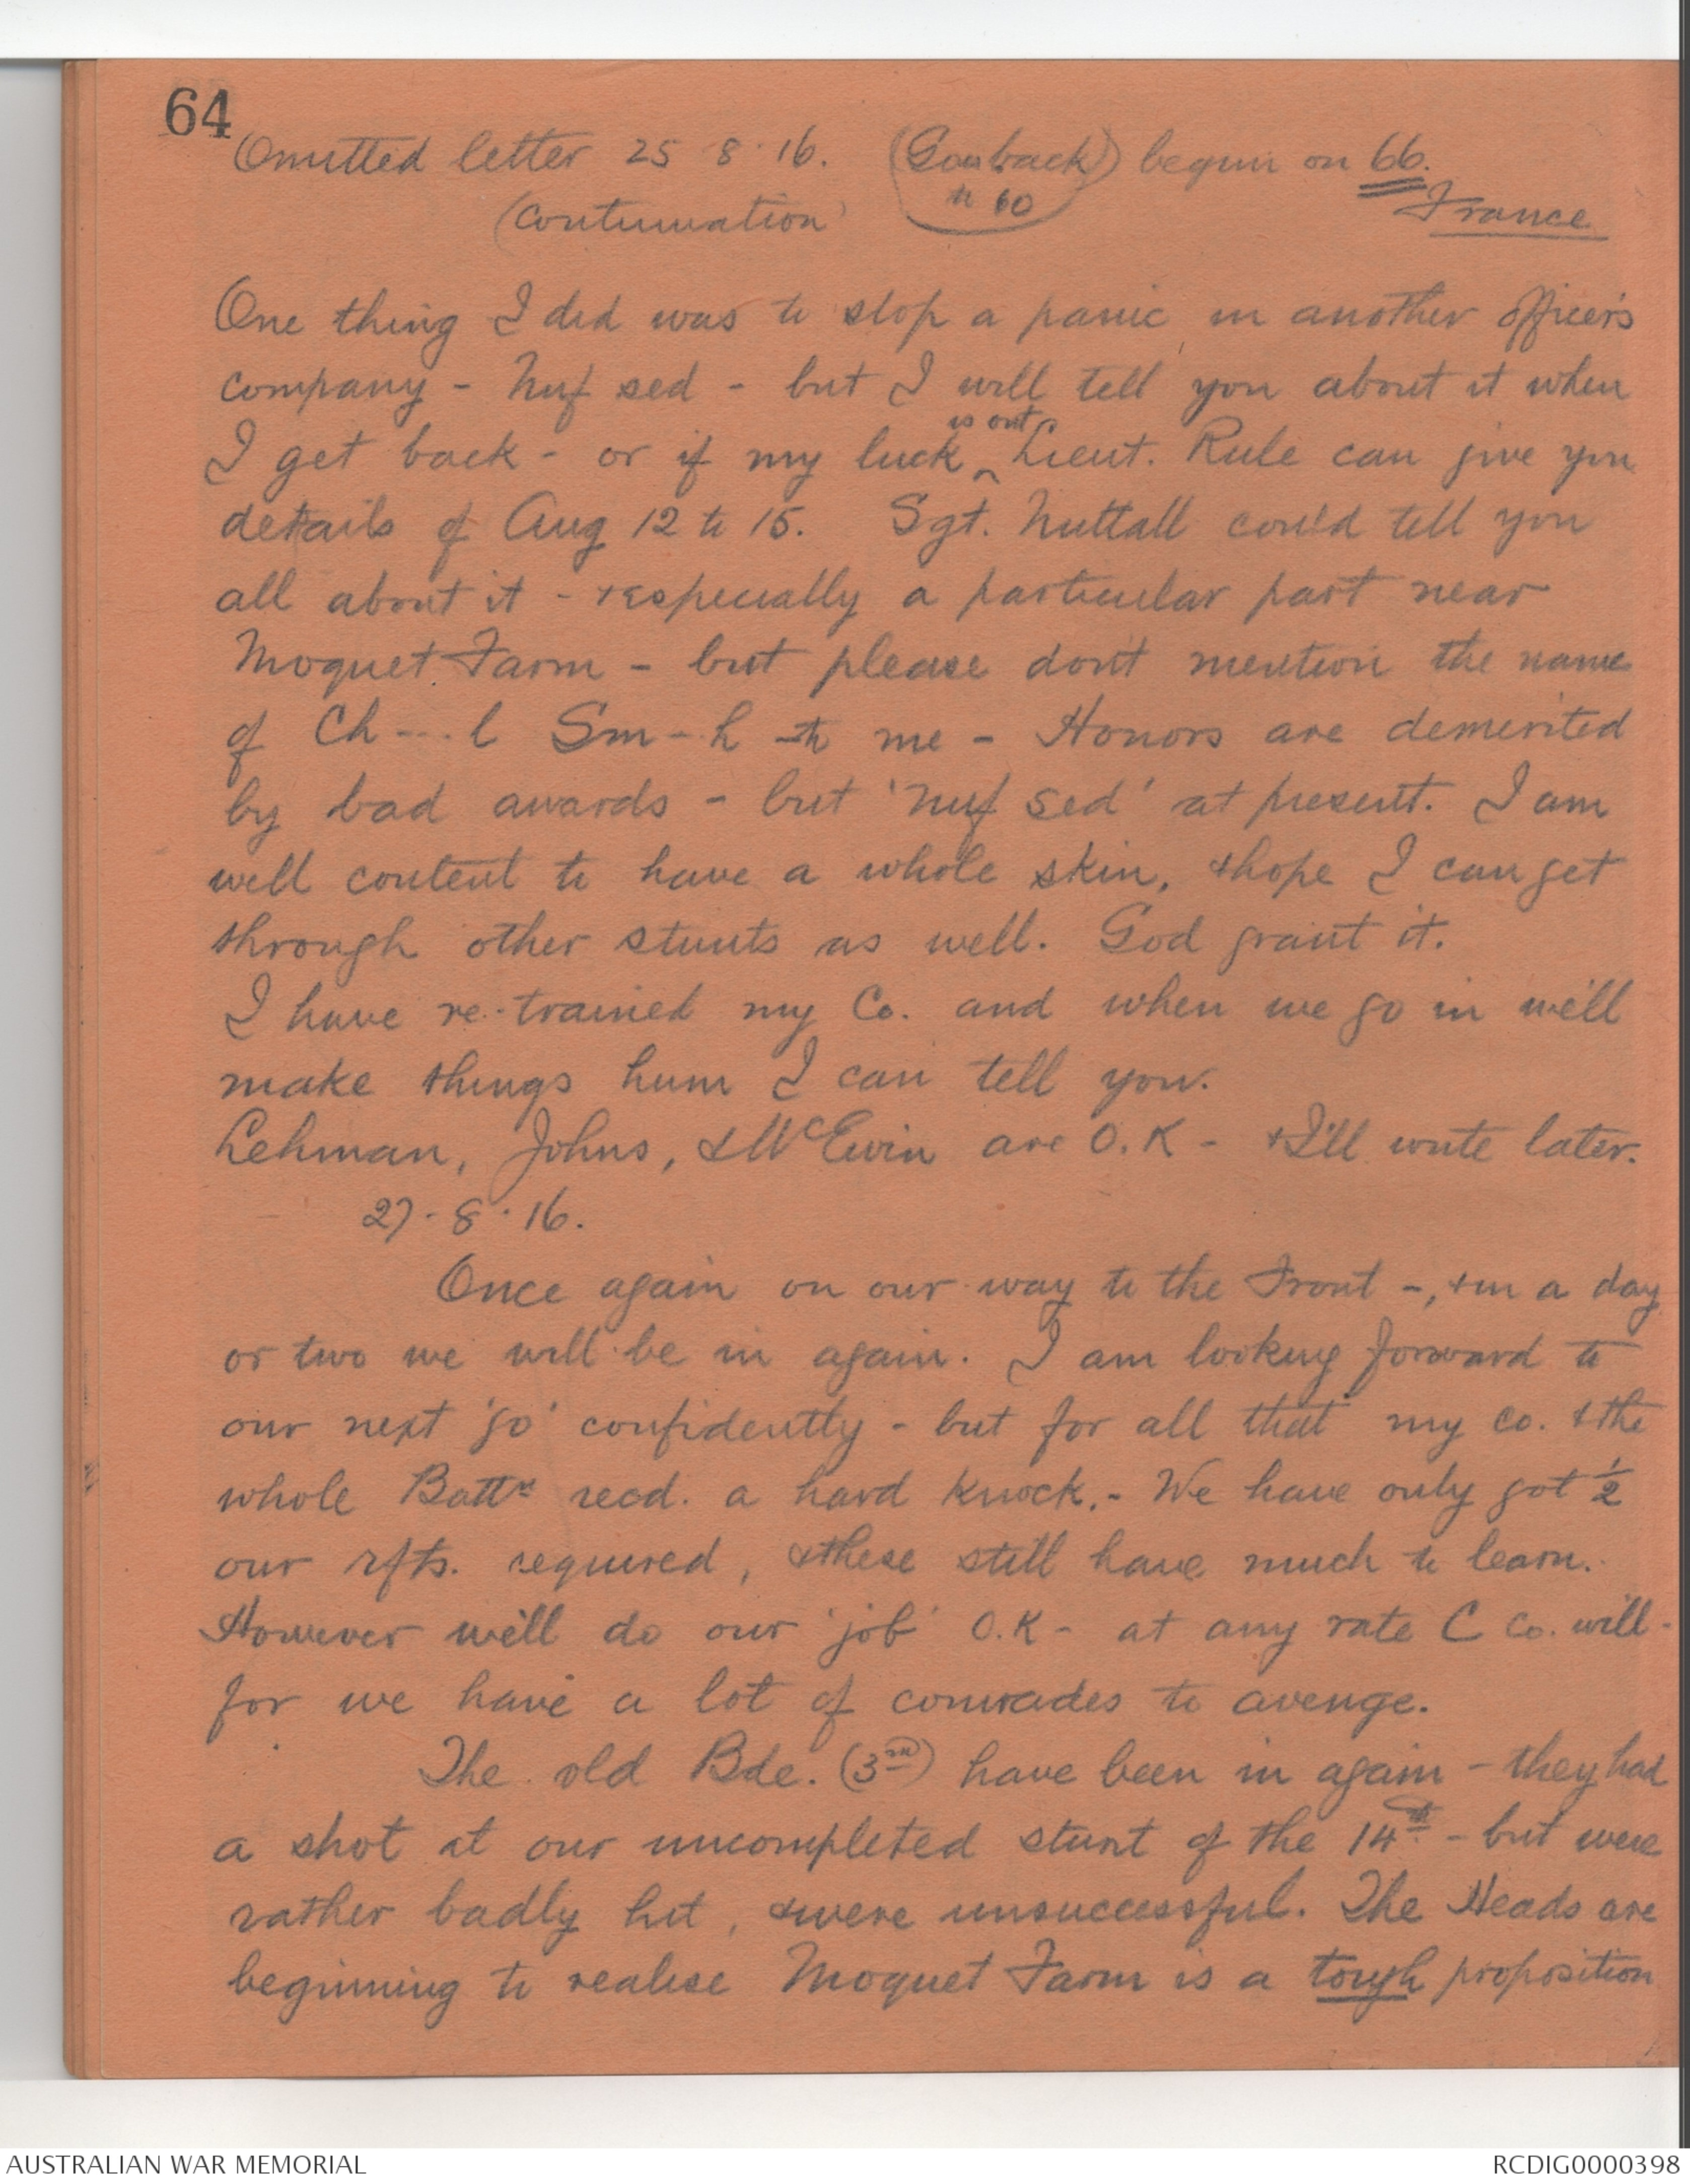 64
Omitted letter 25.8.16. (Goes back) begun on 66.
to 60
(Continuation) France
One thing I did was to stop a panic in another officer's
company - Nuf sed - but I will tell you about it when
is out
I get back - or if my luck ^ Lieut. Rule can give you
details of Aug 12 to 15. Sgt. Nuttall could tell you
all about it - especially a particular part near
Moquet Farm - but please don't mention the name
of Ch---l Sm--h to me - Honors are demerited
by bad awards - but 'Nuf sed' at present. I am
well content to have a whole skin, & hope I can get
through other stunts as well. God grant it.
I have re-trained my Co. and when we go in we'll
make things hum I can tell you.
Lehman, Johns, & McEwin are O.K - & I'll write later.
27.8.16.
Once again on our way to the Front -, & in a day
or two we will be in again. I am looking forward to
our next 'go' confidently - but for all that my co. & the
whole Battn recd. a hard knock.- We have only got ½
our rfts. required, & these still have much to learn.
However we'll do our 'job' O.K - at any rate C Co. will -
for we have a lot of comrades to avenge.
The old Bde. (3rd) have been in again - they had
a shot at our uncompleted stunt of the 14th - but were
rather badly hit, & were unsuccessful. The Heads are
beginning to realise Moquet Farm is a tough proposition
AUSTRALIAN WAR MEMORIAL RCDIG0000398